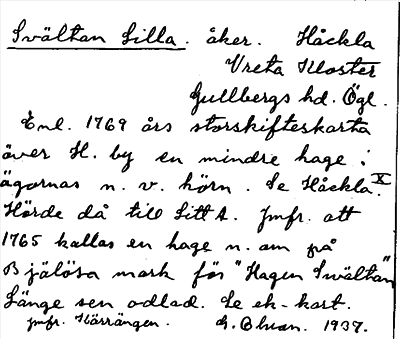 Svältan Lilla. åker. Håckla
Vreta Kloster
Gullbergs hd. Ögl.
Enl. 1769 års storskifteskarta
över H. by en mindre hage i
ägornas n. v. hörn. Se Håckla. X
Hörde då till Litt A. Jmfr. att
1765 kallas en hage n. om på
Bjälösa mark för "Hagen Swältan"
Länge sen odlad. Se ek-kart.
Jmfr. Kärrängen. 1937.